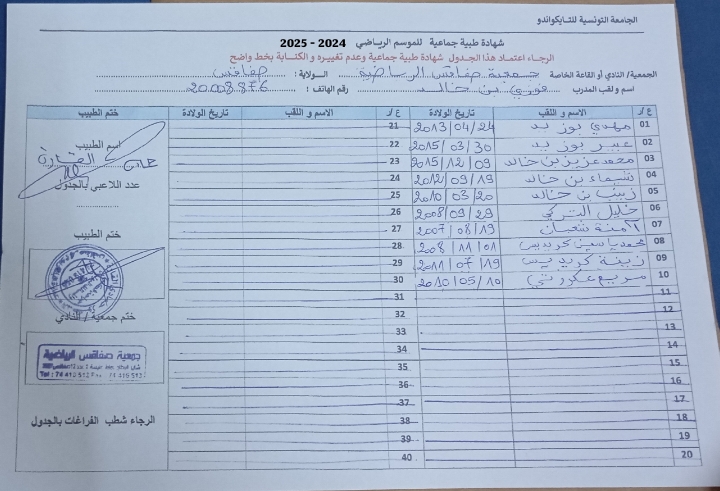 الجامعة التونسية للتايكواندو
شهادة طبية جماعية للموسم الرياضي 2024 - 2025
الرجاء اعتماد هذا الجدول شهادة طبية جماعية وعدم تغييره و الكتابة بخط واضح
الجمعية/ النادي أو القاعة الخاصة : جمعية صفاقس الرياضية الولاية : صفاقس
اسم و لقب المدرب : فوزي بن خالد رقم الهاتف : 20008876
ع/ر الاسم و اللقب تاريخ الولادة ع/ر الاسم و اللقب تاريخ الولادة ختم الطبيب
01 مهدي بوزيد 2013/04/24 21
02 عبير بوزيد 2015/03/30 22
03 محمد عزيز بن خالد 2015/12/09 23
04 شيماء بن خالد 2012/09/19 24
05 زينب بن خالد 2010/03/20 25
06 خليل التركي 2008/09/29 26
07 آمنة شعبان 2007/08/19 27
08 محمد ياسين 2008/11/01 28
09 زينة 2011/07/19 29
10 مريم 2010/05/10 30
11 31
12 32
13 33
14 34
15 35
16 36
17 37
18 38
19 39
20 40
اسم الطبيب
عدد اللاعبي بالجدول
ختم الطبيب
ختم جمعية / النادي
جمعية صفاقس الرياضية
الرجاء شطب الفراغات بالجدول